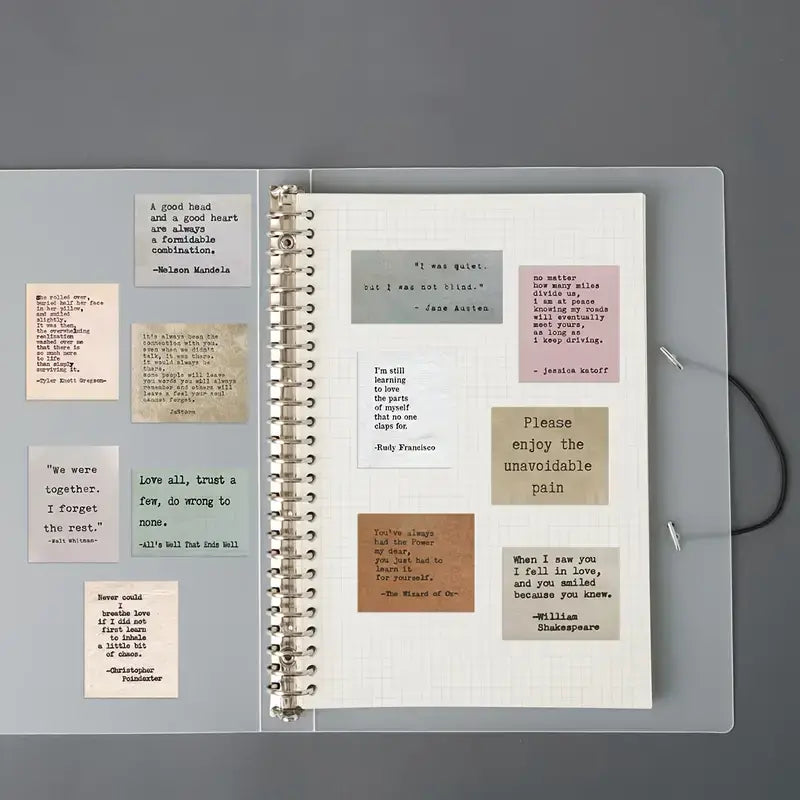 A good head
and a good heart
are always
a formidable
combination.
—Nelson Mandela
She rolled over,
buried half her face
in her pillow,
and smiled
slightly.
It was then,
the overwhelming
realization
washed over me
that there is
so much more
to life
than simply
surviving it.
-Tyler Knott Gregson-
It's always been the
connection with you.
even when we didn't
talk, it was there.
it would always be
there.
some people will leave
you words you will always
remember and others will
leave a feel your soul
cannot forget.
JmStorm
"We were
together.
I forget
the rest."
-Walt Whitman-
Love all, trust a
few, do wrong to
none.
-All's Well That Ends Well
Never could
I
breathe love
if I did not
first learn
to inhale
a little bit
of chaos.
-Christopher
Poindexter
"I was quiet.
but I was not blind."
- Jane Austen
no matter
how many miles
divide us,
i am at peace
knowing my roads
will eventually
meet yours,
as long as
i keep driving.
- jessica katoff
I'm still
learning
to love
the parts
of myself
that no one
claps for.
-Rudy Francisco
Please
enjoy the
unavoidable
pain
You've always
had the Power
my dear,
you just had to
learn it
for yourself.
—The Wizard of Oz—
When I saw you
I fell in love,
and you smiled
because you knew.
—William
Shakespeare